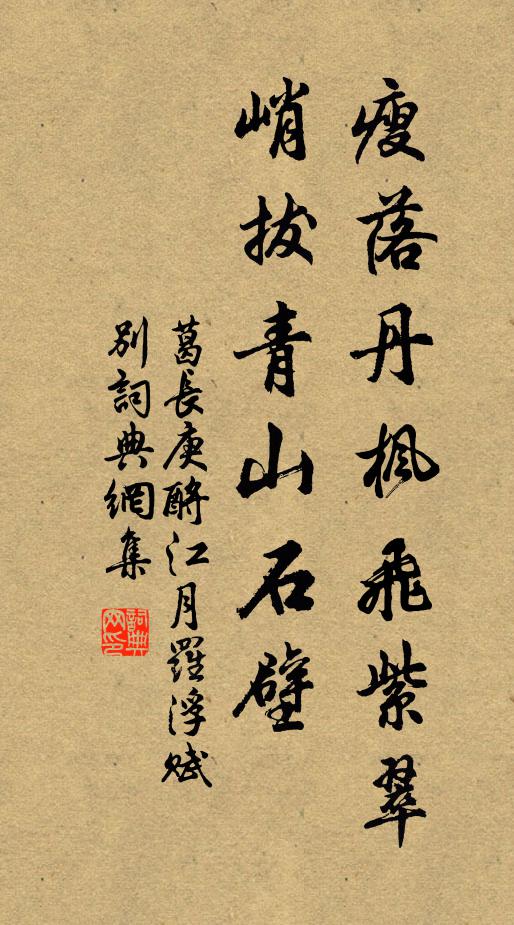 瘦落丹楓飛紫翠
峭拔青山石壁
葛長庚酹江月羅浮賦
別詞典網集
詞典
网印